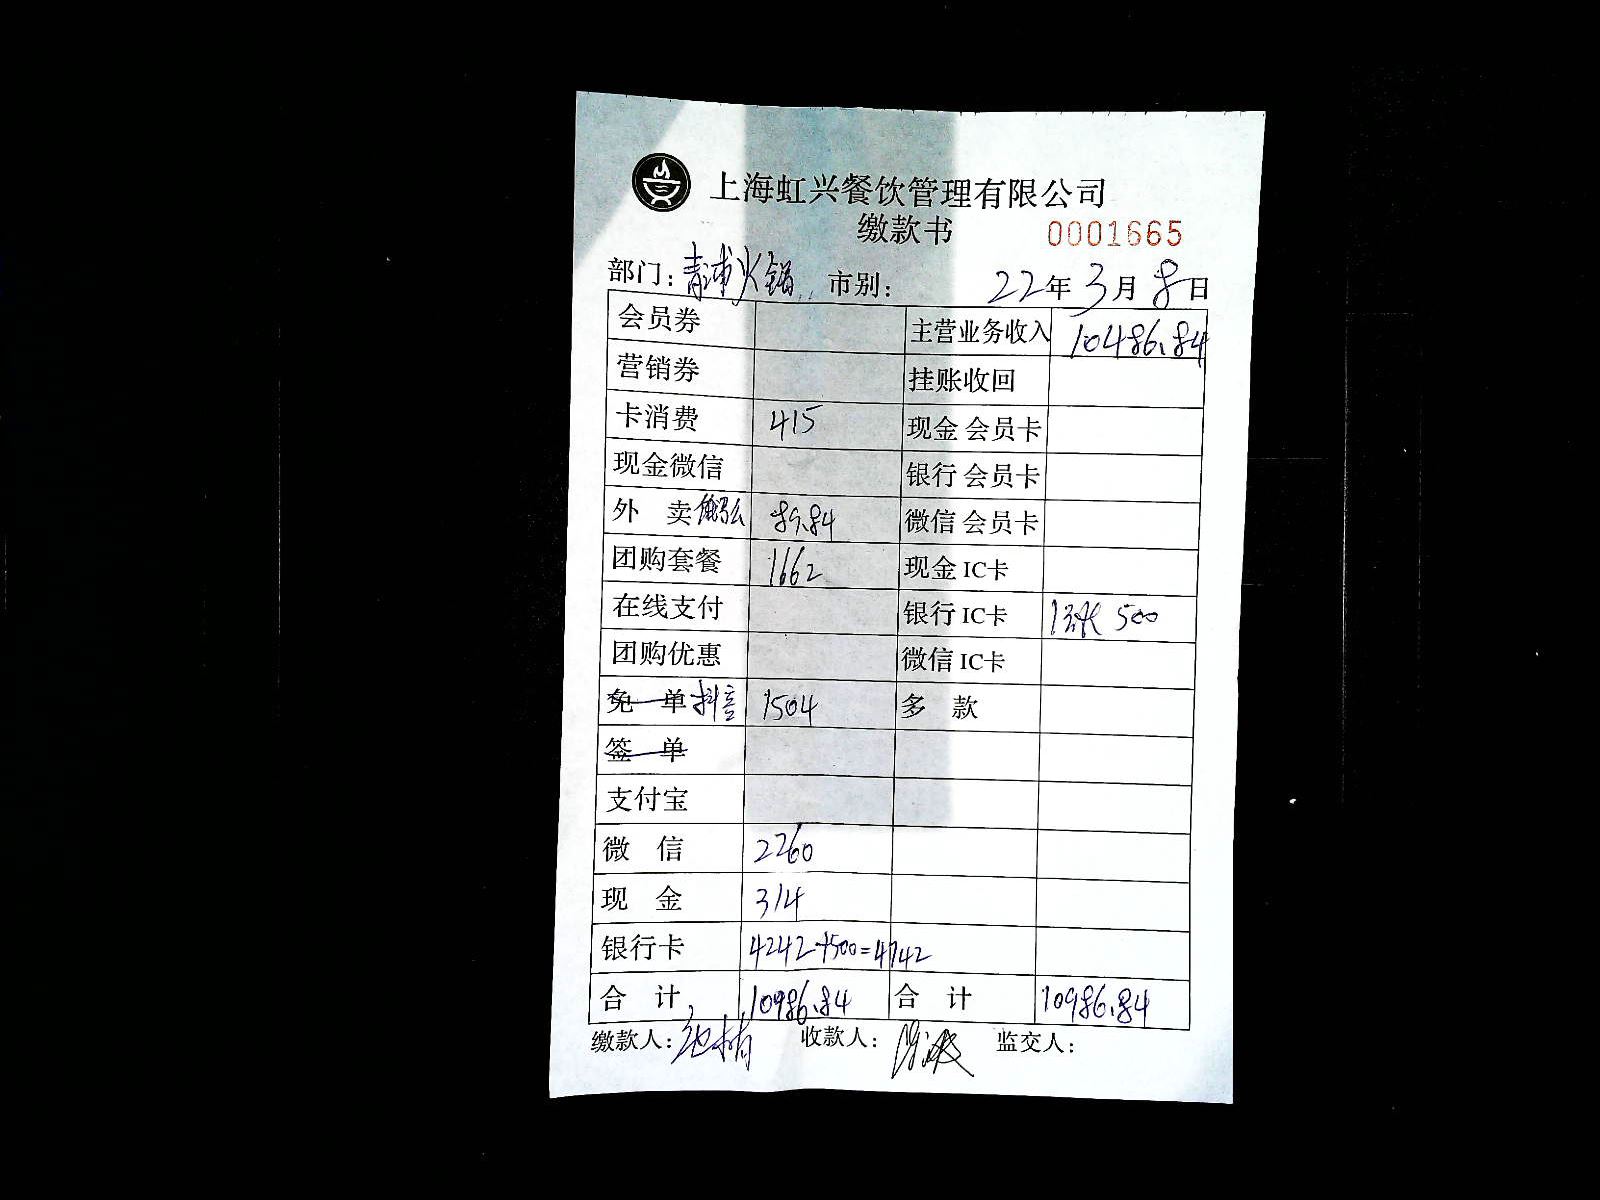 上海虹兴餐饮管理有限公司
缴款书 0001665
部门: 青浦火锅 市别: 22年3月8日
会员券 主营业务收入 10486.84
营销券 挂账收回
卡消费 415 现金 会员卡
现金微信 银行 会员卡
外 卖 饿了么 89.84 微信 会员卡
团购套餐 1662 现金 IC卡
在线支付 银行 IC卡 1张 500
团购优惠 微信 IC卡
免 单 抖音 1504 多 款
签 单
支付宝
微 信 2260
现 金 314
银行卡 4242+500=4742
合 计 10986.84 合 计 10986.84
缴款人: 收款人: 监交人: